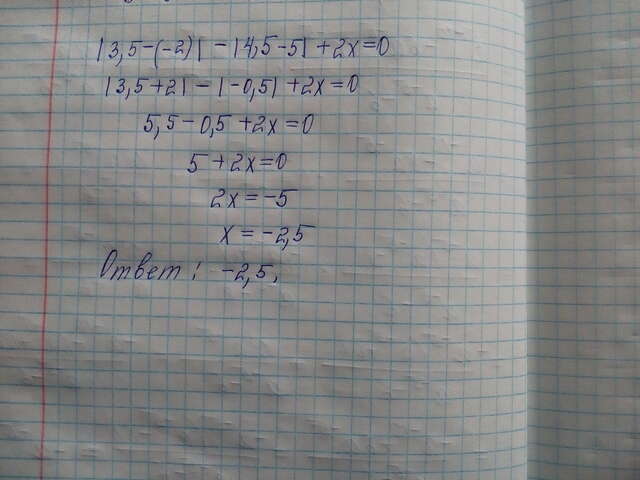 |3,5-(-2)| - |4,5-5| + 2x=0
|3,5+2| - |-0,5| + 2x=0
5,5-0,5+2x=0
5+2x=0
2x=-5
x=-2,5
Ответ: -2,5.